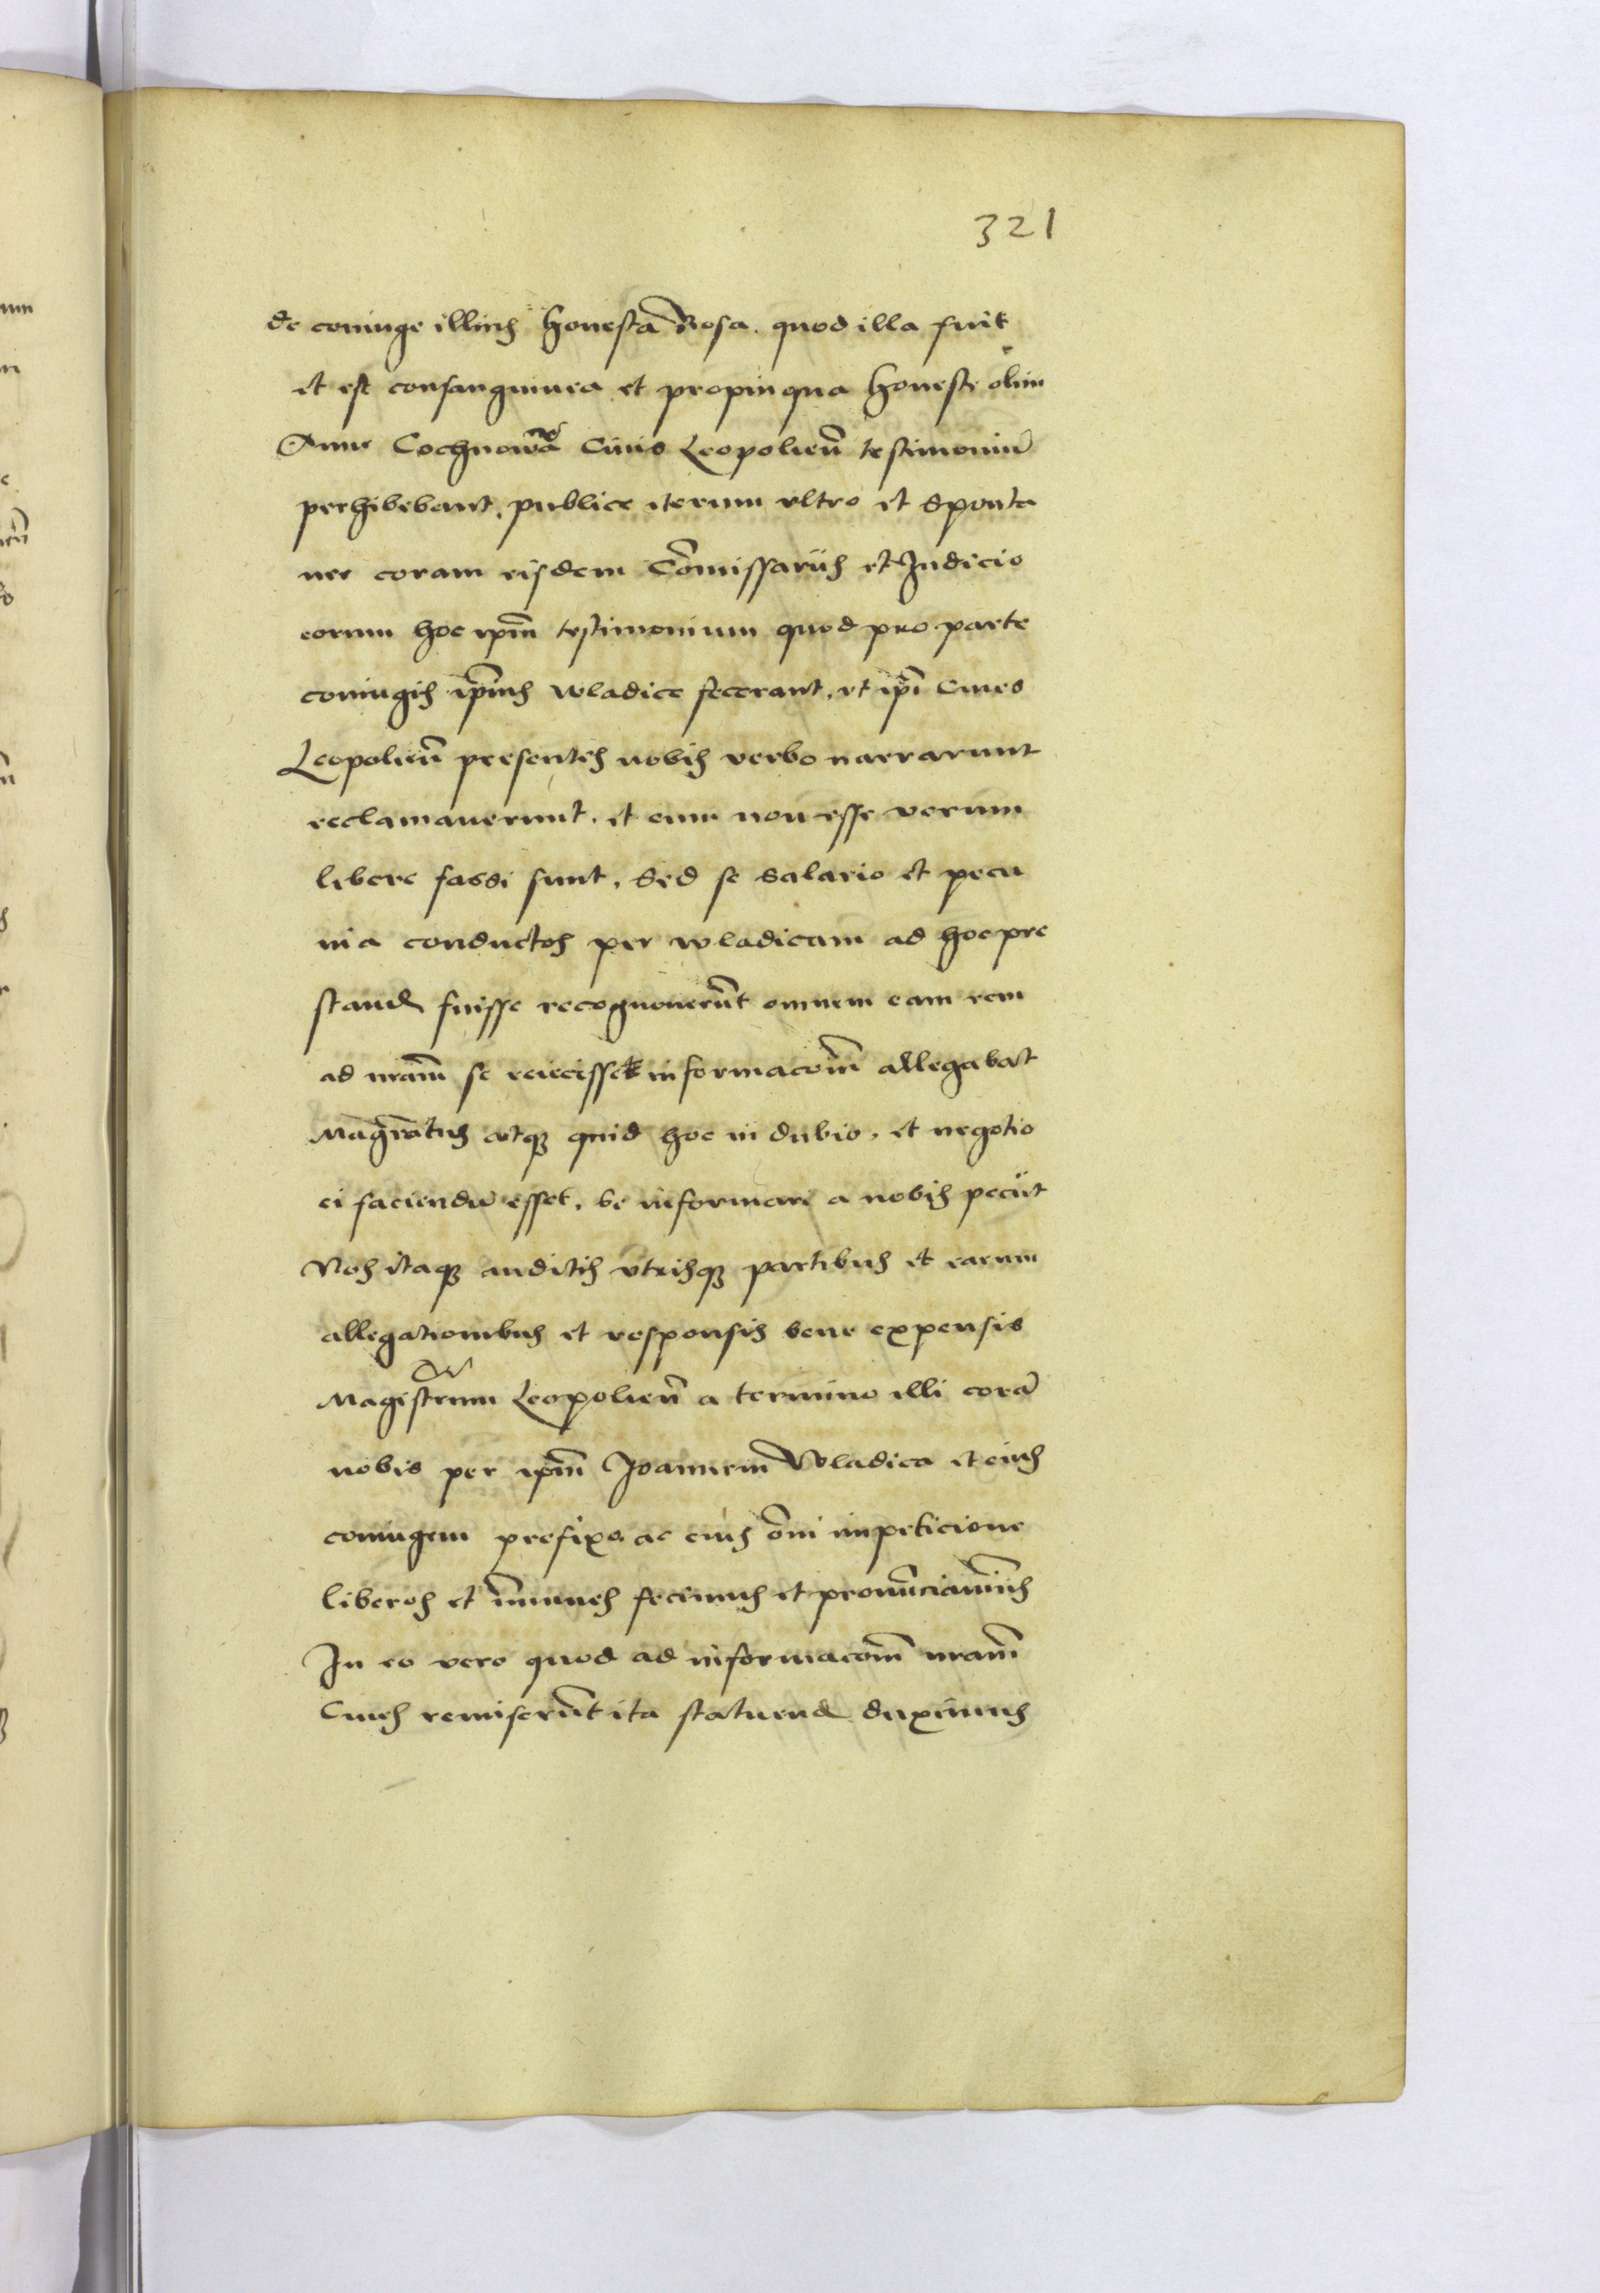 321
de coniuge illius honesta Rosa. quod illa fuit
et est consanguinea et propinqua honeste olim
Anne Cochnowa Ciuis Leopolien̄ testimoniū
perhibebant, publice iterum vltro et sponta
nee coram eisdem Cōmissariis et Judicio
eorum hoc ipm̄ testimonium quod pro parte
coniugis ipīus wladice fecerant, vt ipī Ciues
Leopolien̄ presentes nobis verbo narrarunt
reclamauerunt, et eum non esse verum
libere fassi sunt, Sed se salario et pecu
nia conductos per wladicam ad hoc pre
stand fuisse recognouerūt omnem eam rem
ad nram̄ se reiecisse informacom̄ allegabat
Magr̄atus atq quid hoc in dubio, et negotio
ei faciendū esset, se informari a nobis peciit
Nos itaq auditis vtrisq partibus et earum
allegationibus et responsis bene expensis
Magistrum Leopolien̄ a termino illi corā
nobis per ipm̄ Joannem Wladica et eius
coniugem prefixo ac eius om̄i impeticione
liberos et im̄unes fecimus et pronūciauimus
In eo vero quod ad informacom̄ nram̄
Ciues remiserūt ita statuend duximus